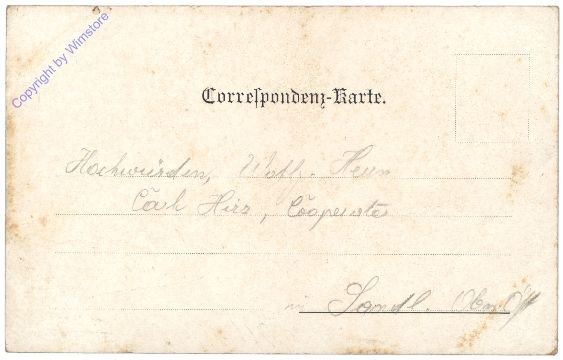 Copyright by Wimstore
Correspondenz-Karte.
Hochwürden, Herrn
Carl Hirz, Cooperator
in Sandl.